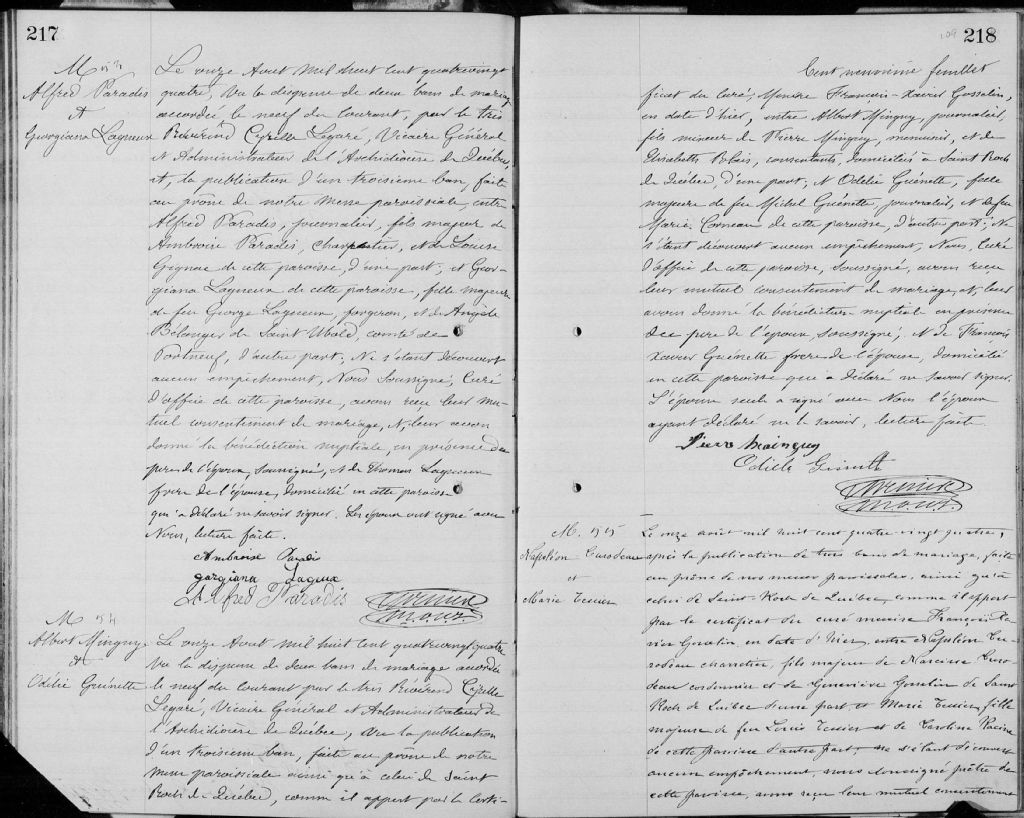 217
M 53
Alfred Paradis
&
Georgiana Lagueux
Le onze Aout mil huit cent quatrevingt
quatre, Vu la dispense de deux bans de mariage
accordée le neuf du courant, par le très
Révérend Cyrille Legaré, Vicaire Général
et Administrateur de l'Archidiocèse de Québec,
et, la publication d'un troisième ban, faite
au prône de notre Messe paroissiale, entre
Alfred Paradis, journalier, fils majeur de
Ambroise Paradis, Charpentier, et de Louise
Gagnac de cette paroisse, d'une part; et Geor-
giana Lagueux de cette paroisse, fille majeure
de feu George Lagueux, forgeron, et de Angèle
Bélanger de Saint Ubald, comté de
Portneuf, d'autre part; Ne s'étant découvert
aucun empêchement, Nous Soussigné, Curé
d'office de cette paroisse, avons reçu leur mu-
tuel consentement de mariage, et, leur avons
donné la bénédiction nuptiale, en présence du
père de l'époux, soussigné, et de Thomas Lagueux
frère de l'épouse, domicilié en cette paroisse
qui a déclaré ne savoir signer. Les époux ont signé avec
Nous, lecture faite.
Ambroise Paradi
gorgiana Lageux
Alfred Paradis
M 54
Albert Minguy
&
Odélie Guénette
Le onze Aout mil huit cent quatrevingt quatre
Vu la dispense de deux bans de mariage accordée
le neuf du courant par le très Révérend Cyrille
Legaré, Vicaire Général et Administrateur de
l'Archidiocèse de Québec, Vu la publication
d'un troisième ban, faite au prône de notre
Messe paroissiale ainsi qu'à celui de Saint
Roch de Québec, comme il appert par le Certi-
109
218
Cent neuvième feuillet
ficat du Curé, Messire François-Xavier Gosselin,
en date d'hier, entre Albert Minguy, journalier,
fils mineur de Pierre Minguy, menuisier, et de
Elisabeth Blais, consentants, domiciliés à Saint Roch
de Québec, d'une part; et Odélie Guénette, fille
majeure de feu Michel Guénette, journalier, et de feu
Marie Comeau de cette paroisse, d'autre part; Ne
s'étant découvert aucun empêchement, Nous, Curé
d'office de cette paroisse, soussigné, avons reçu
leur mutuel consentement de mariage, et, leur
avons donné la bénédiction nuptiale en présence
du père de l'époux, soussigné, et de François
Xavier Guénette frère de l'épouse, domicilié
en cette paroisse qui a déclaré ne savoir signer.
L'épouse seule a signé avec Nous l'époux
ayant déclaré ne le savoir, lecture faite.
Pierre Mainguy
Odile Guinette
M. 55
Napoléon Turodeau
et
Marie Tessier
Le onze août mil huit cent quatre vingt quatre,
après la publication de trois bans de mariage, faite
au prône de nos messes paroissiales, ainsi qu'à
celui de Saint-Roch de Québec comme il appert
par le certificat du curé messire François Xa-
vier Gosselin en date d'hier, entre Napoléon Tu-
rodeau charretier, fils majeur de Narcisse Turo-
deau cordonnier et de Geneviève Gosselin de Saint
Roch de Québec d'une part, et Marie Tessier, fille
majeure de feu Louis Tessier et de Caroline Racine
de cette paroisse d'autre part; ne s'étant découvert
aucun empêchement, nous soussigné prêtre de
cette paroisse, avons reçu leur mutuel consentement